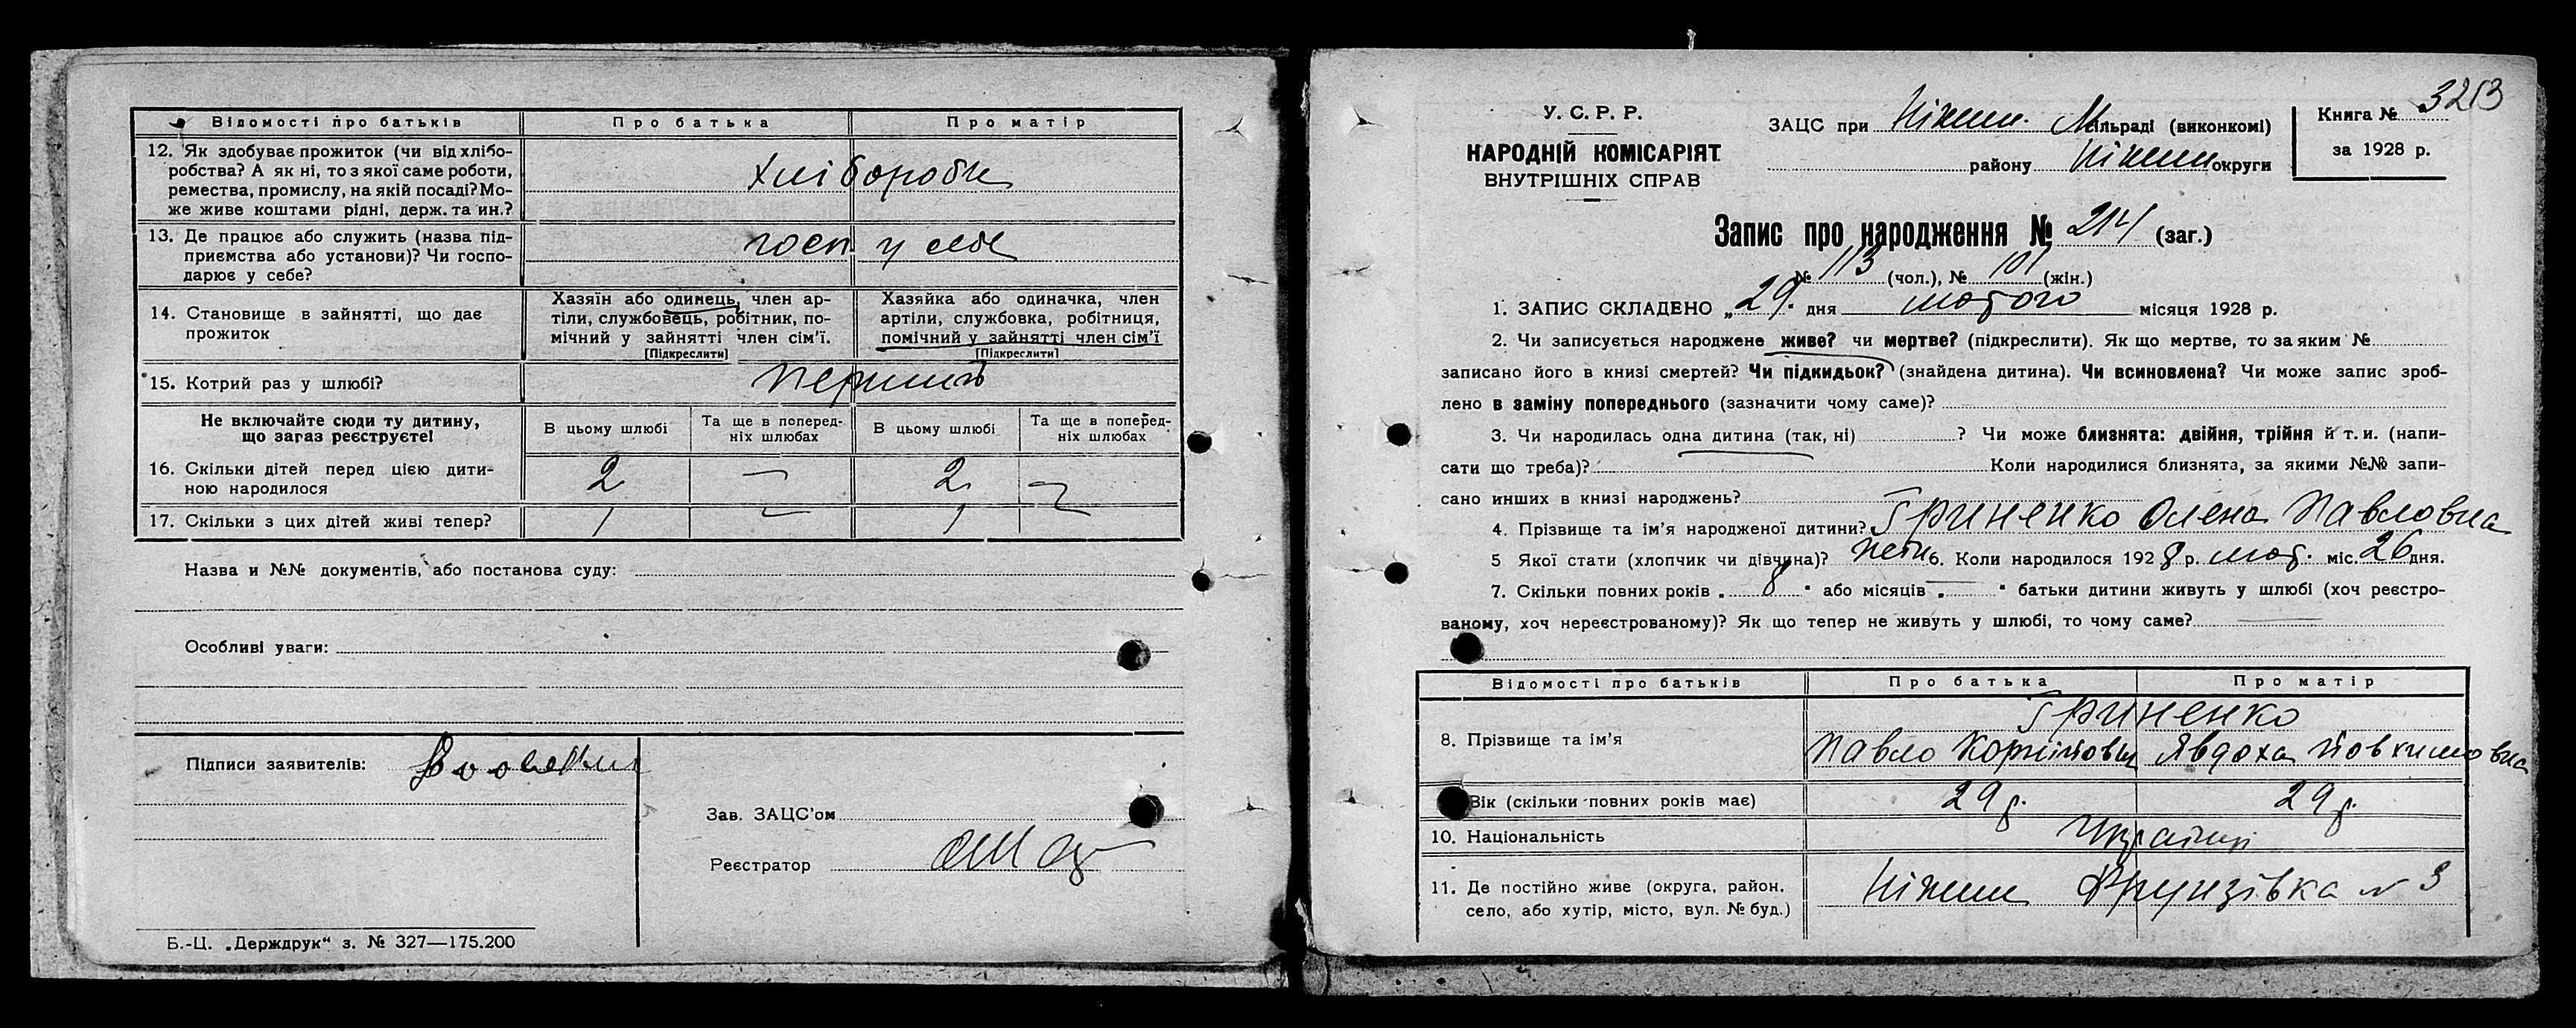 Відомості про батьків Про батька Про матір
12. Як здобуває прожиток (чи від хлібо-
робства? А як ні, то з якої саме роботи,
ремества, промислу, на якій посаді? Мо-
же живе коштами рідні, держ. та ин.?
Хлібороби
13. Де працює або служить (назва під-
приємства або установи)? Чи госпо-
дарює у себе?
госп у себе
14. Становище в зайнятті, що дає
прожиток
Хазяїн або одинець, член ар-
тіли, службовець, робітник, по-
мічний у зайнятті член сім'ї.
[Підкреслити]
Хазяйка або одиначка, член
артіли, службовка, робітниця,
помічний у зайнятті член сім'ї
[Підкреслити]
15. Котрий раз у шлюбі? перший
Не включайте сюди ту дитину,
що загаз реєструєте!
В цьому шлюбі
Та ще в поперед-
ніх шлюбах
В цьому шлюбі
Та ще в поперед-
ніх шлюбах
16. Скільки дітей перед цією дити-
ною народилося
2 — 2 —
17. Скільки з цих дітей живі тепер? 1 — 1 —
Назва и №№ документів, або постанова суду:
Особливі уваги:
Підписи заявителів:
Зав. ЗАЦС'ом
Реєстратор
Б.-Ц. „Держдрук“ з. № 327—175.200
3213
У. С. Р. Р.
НАРОДНІЙ КОМІСАРІЯТ
ВНУТРІШНІХ СПРАВ
ЗАЦС при Ніжин. Мільраді (виконкомі)
району Ніжин округи
Книга №
за 1928 р.
Запис про народження № 214 (заг.)
№ 113 (чол.), № 101 (жін.)
1. ЗАПИС СКЛАДЕНО „29. дня лютого місяця 1928 р.
2. Чи записується народжене живе? чи мертве? (підкреслити). Як що мертве, то за яким №
записано його в книзі смертей? Чи підкидьок? (знайдена дитина). Чи всиновлена? Чи може запис зроб-
лено в заміну попереднього (зазначити чому саме)?
3. Чи народилась одна дитина (так, ні) ? Чи може близнята: двійня, трійня й т. и. (напи-
сати що треба)? Коли народилися близнята, за якими №№ запи-
сано инших в книзі народжень?
4. Прізвище та ім'я народженої дитини? Гриненко Олена Павловна
5 Якої стати (хлопчик чи дівчина)? 6. Коли народилося 1928 р. лют. міс. 26 дня.
7. Скільки повних років „ 8 " або місяців „ — " батьки дитини живуть у шлюбі (хоч реєстро-
ваному, хоч нереєстрованому)? Як що тепер не живуть у шлюбі, то чому саме? —
Відомості про батьків Про батька Про матір
Гриненко
8. Прізвище та ім'я
Павло Корнійович Явдоха Йовкимовна
Вік (скільки повних років має) 29 р. 29 р.
10. Національність Українці
11. Де постійно живе (округа, район.
село, або хутір, місто, вул. № буд.)
Ніжин Фрунзівка № 3